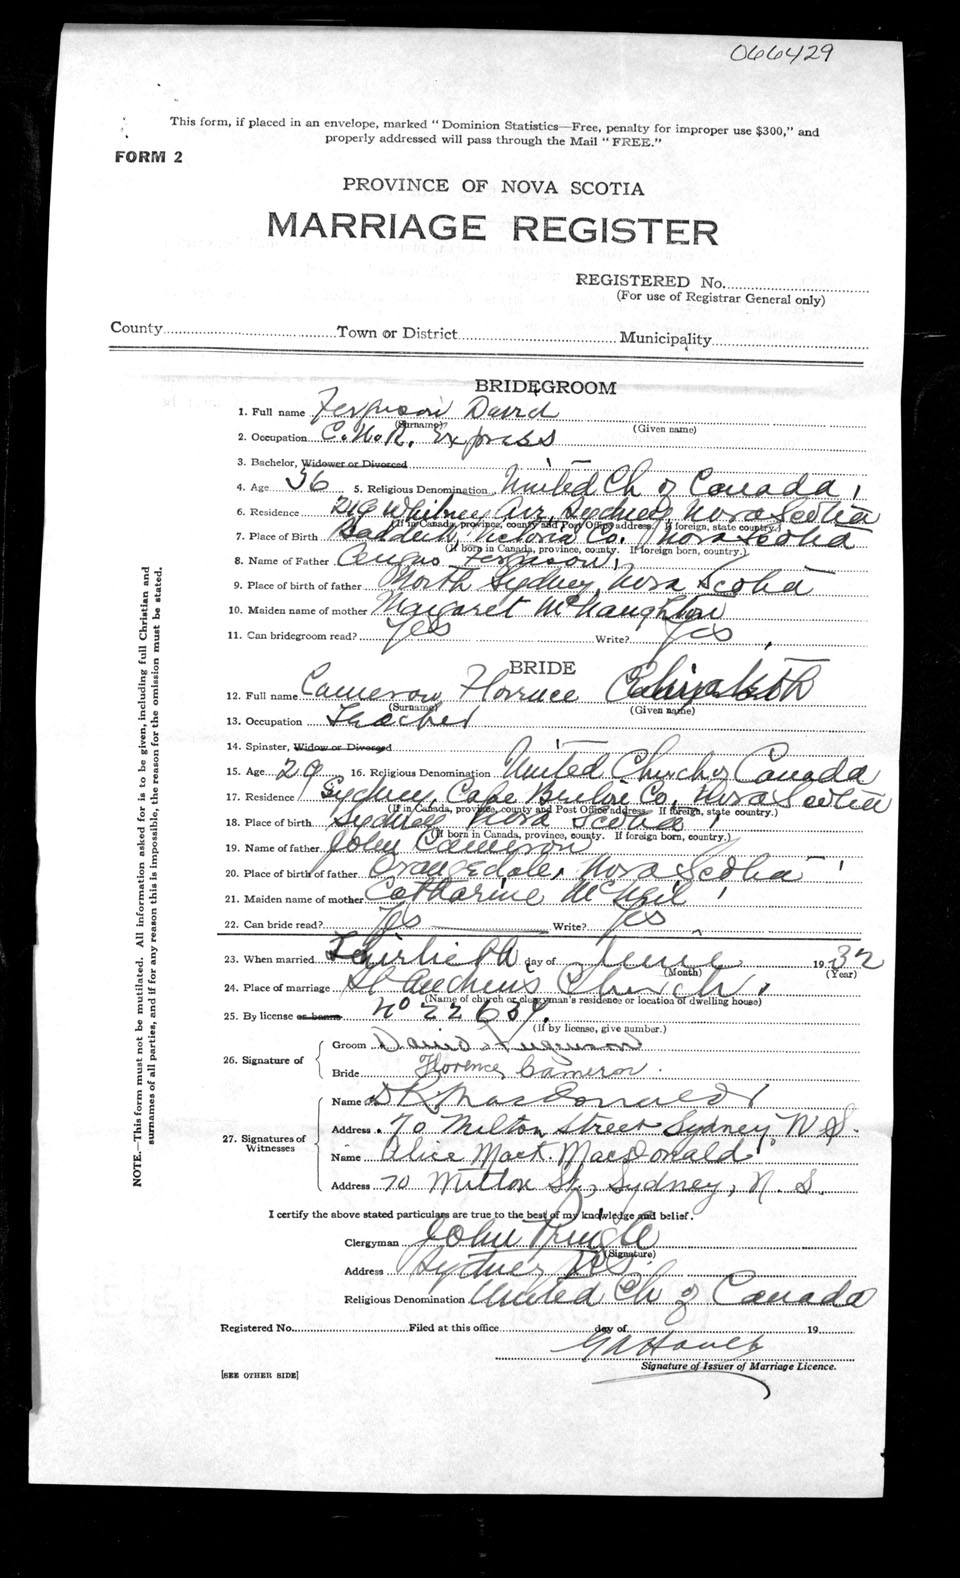 066429
This form, if placed in an envelope, marked "Dominion Statistics—Free, penalty for improper use $300," and
properly addressed will pass through the Mail "FREE."
FORM 2
PROVINCE OF NOVA SCOTIA
MARRIAGE REGISTER
REGISTERED No.
(For use of Registrar General only)
County Town or District Municipality
BRIDEGROOM
1. Full name Ferguson David
(Surname) (Given name)
2. Occupation C.N.R. Express
3. Bachelor, Widower or Divorced
4. Age 36 5. Religious Denomination United Ch of Canada
6. Residence Whitney Ave, Sydney, Nova Scotia
(If in Canada, province, county and Post Office address. If foreign, state country.)
7. Place of Birth Baddeck, Victoria Co. Nova Scotia
(If born in Canada, province, county. If foreign born, country.)
8. Name of Father Angus Ferguson
9. Place of birth of father North Sydney, Nova Scotia
10. Maiden name of mother Margaret McNaughton
11. Can bridegroom read? Yes Write? Yes
BRIDE
12. Full name Cameron Florence Elizabeth
(Surname) (Given name)
13. Occupation Teacher
14. Spinster, Widow or Divorced
15. Age 29 16. Religious Denomination United Church of Canada
17. Residence Sydney, Cape Breton Co, Nova Scotia
(If in Canada, province, county and Post Office address. If foreign, state country.)
18. Place of birth Sydney Nova Scotia
(If born in Canada, province, county. If foreign born, country.)
19. Name of father John Cameron
20. Place of birth of father Orangedale, Nova Scotia
21. Maiden name of mother Catharine McNeil
22. Can bride read? Yes Write? Yes
23. When married Thirtieth day of June 1932
(Month) (Year)
24. Place of marriage St Andrews Church
(Name of church or clergyman's residence or location of dwelling house)
25. By license or banns No 22634
(If by license, give number.)
26. Signature of
Groom David Ferguson
Bride Florence Cameron.
27. Signatures of
Witnesses
Name D R MacDonald
Address 70 Milton Street Sydney N S.
Name Alice Mack. MacDonald
Address 70 Milton St., Sydney, N. S.
I certify the above stated particulars are true to the best of my knowledge and belief.
Clergyman John Pringle
(Signature)
Address Sydney N S.
Religious Denomination United Ch of Canada
Registered No. Filed at this office day of 19
Signature of Issuer of Marriage Licence.
[SEE OTHER SIDE]
NOTE.—This form must not be mutilated. All information asked for is to be given, including full Christian and
surnames of all parties, and if for any reason this is impossible, the reason for the omission must be stated.